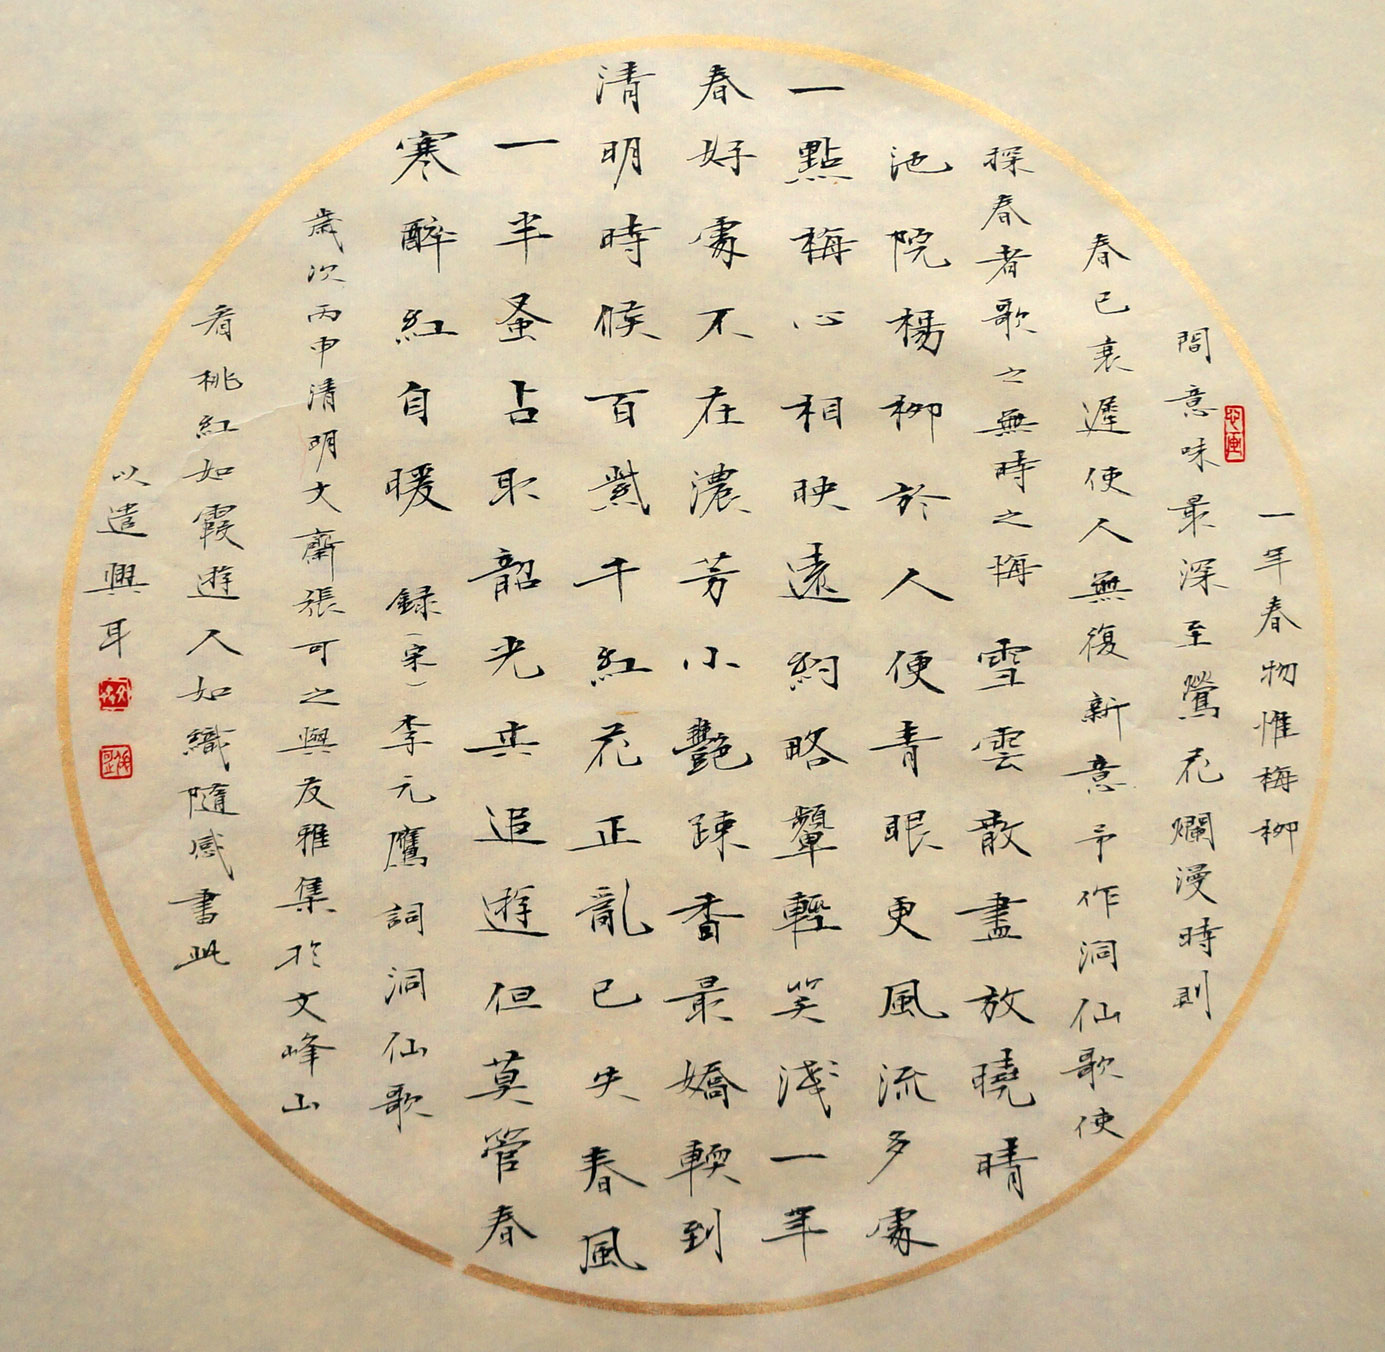 一年春物惟梅柳
間意味最深至鶯花爛漫時則
春已衰遲使人無復新意予作洞仙歌使
探春者歌之無時之悔 雪雲散盡放曉晴
池院楊柳於人便青眼更風流多處
一點梅心相映遠約略顰輕笑淺一年
春好處不在濃芳小艷疎香最嬌輭到
清明時候百紫千紅花正亂已失春風
一半蚤占取韶光共追遊但莫管春
寒醉紅自暖 録(宋)李元鷹詞洞仙歌
歲次丙申清明文齋張可之與友雅集於文峰山
看桃紅如霞遊人如織隨感書此
以遣興耳